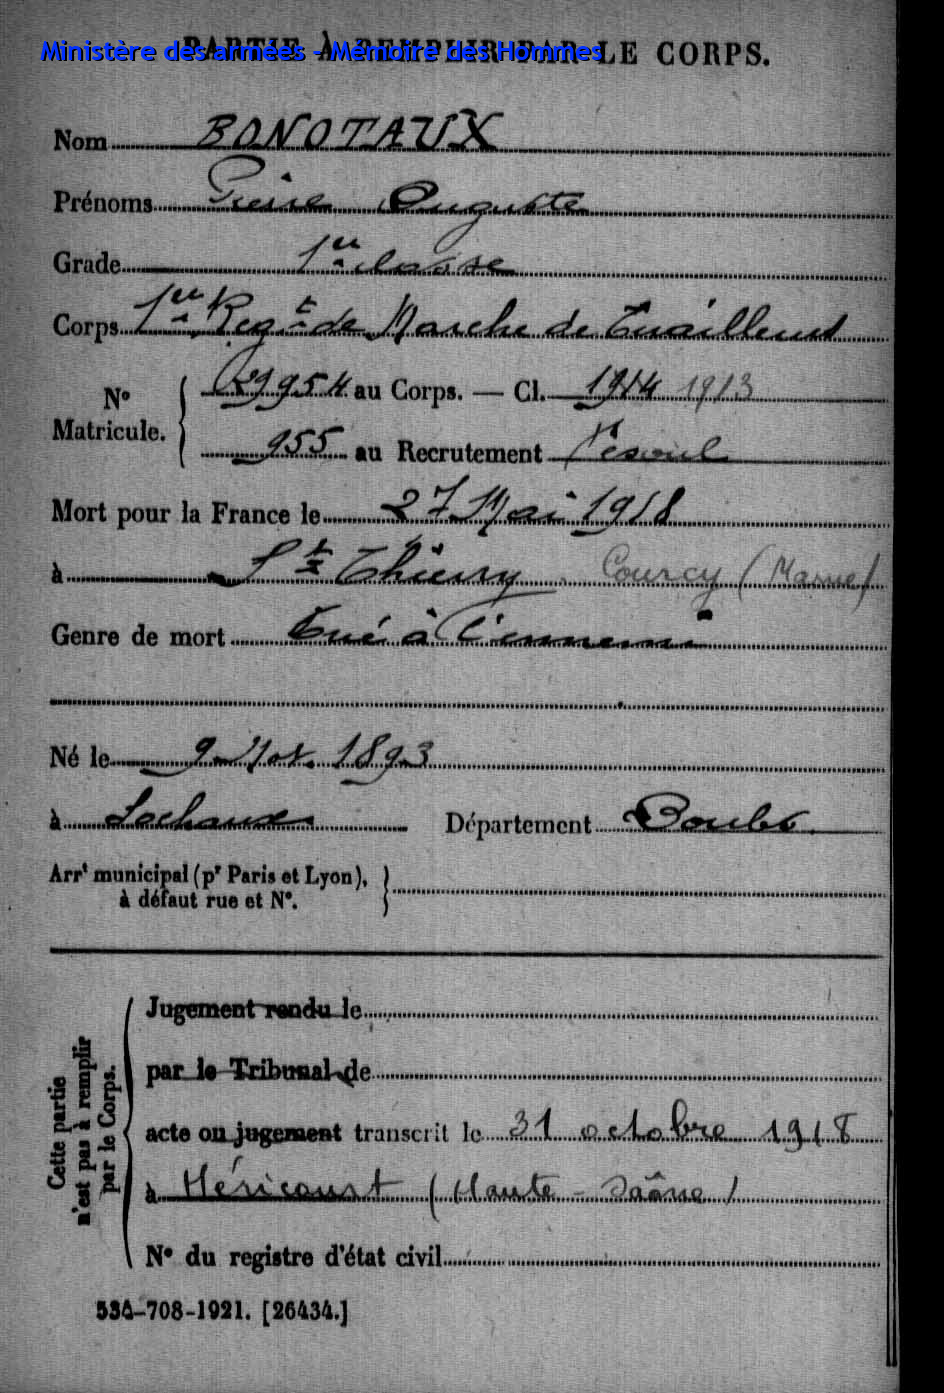 PARTIE À REMPLIR PAR LE CORPS.
Ministère des armées - Mémoire des Hommes
Nom BONOTAUX
Prénoms Pierre Auguste
Grade 1re classe
Corps 1er Regt de Marche de Tirailleurs
No Matricule. 954 au Corps. — Cl. 1914 1913
955 au Recrutement Vesoul
Mort pour la France le 27 Mai 1918
à St Thierry Courcy (Marne)
Genre de mort Tué à l'ennemi
Né le 9 Nov. 1893
à Sochaux Département Doubs
Arrt municipal (pr Paris et Lyon),
à défaut rue et No.
Cette partie
n'est pas à remplir
par le Corps.
Jugement rendu le
par le Tribunal de
acte ou jugement transcrit le 31 octobre 1918
à Héricourt (Haute-Saône)
No du registre d'état civil
534-708-1921. [26434.]